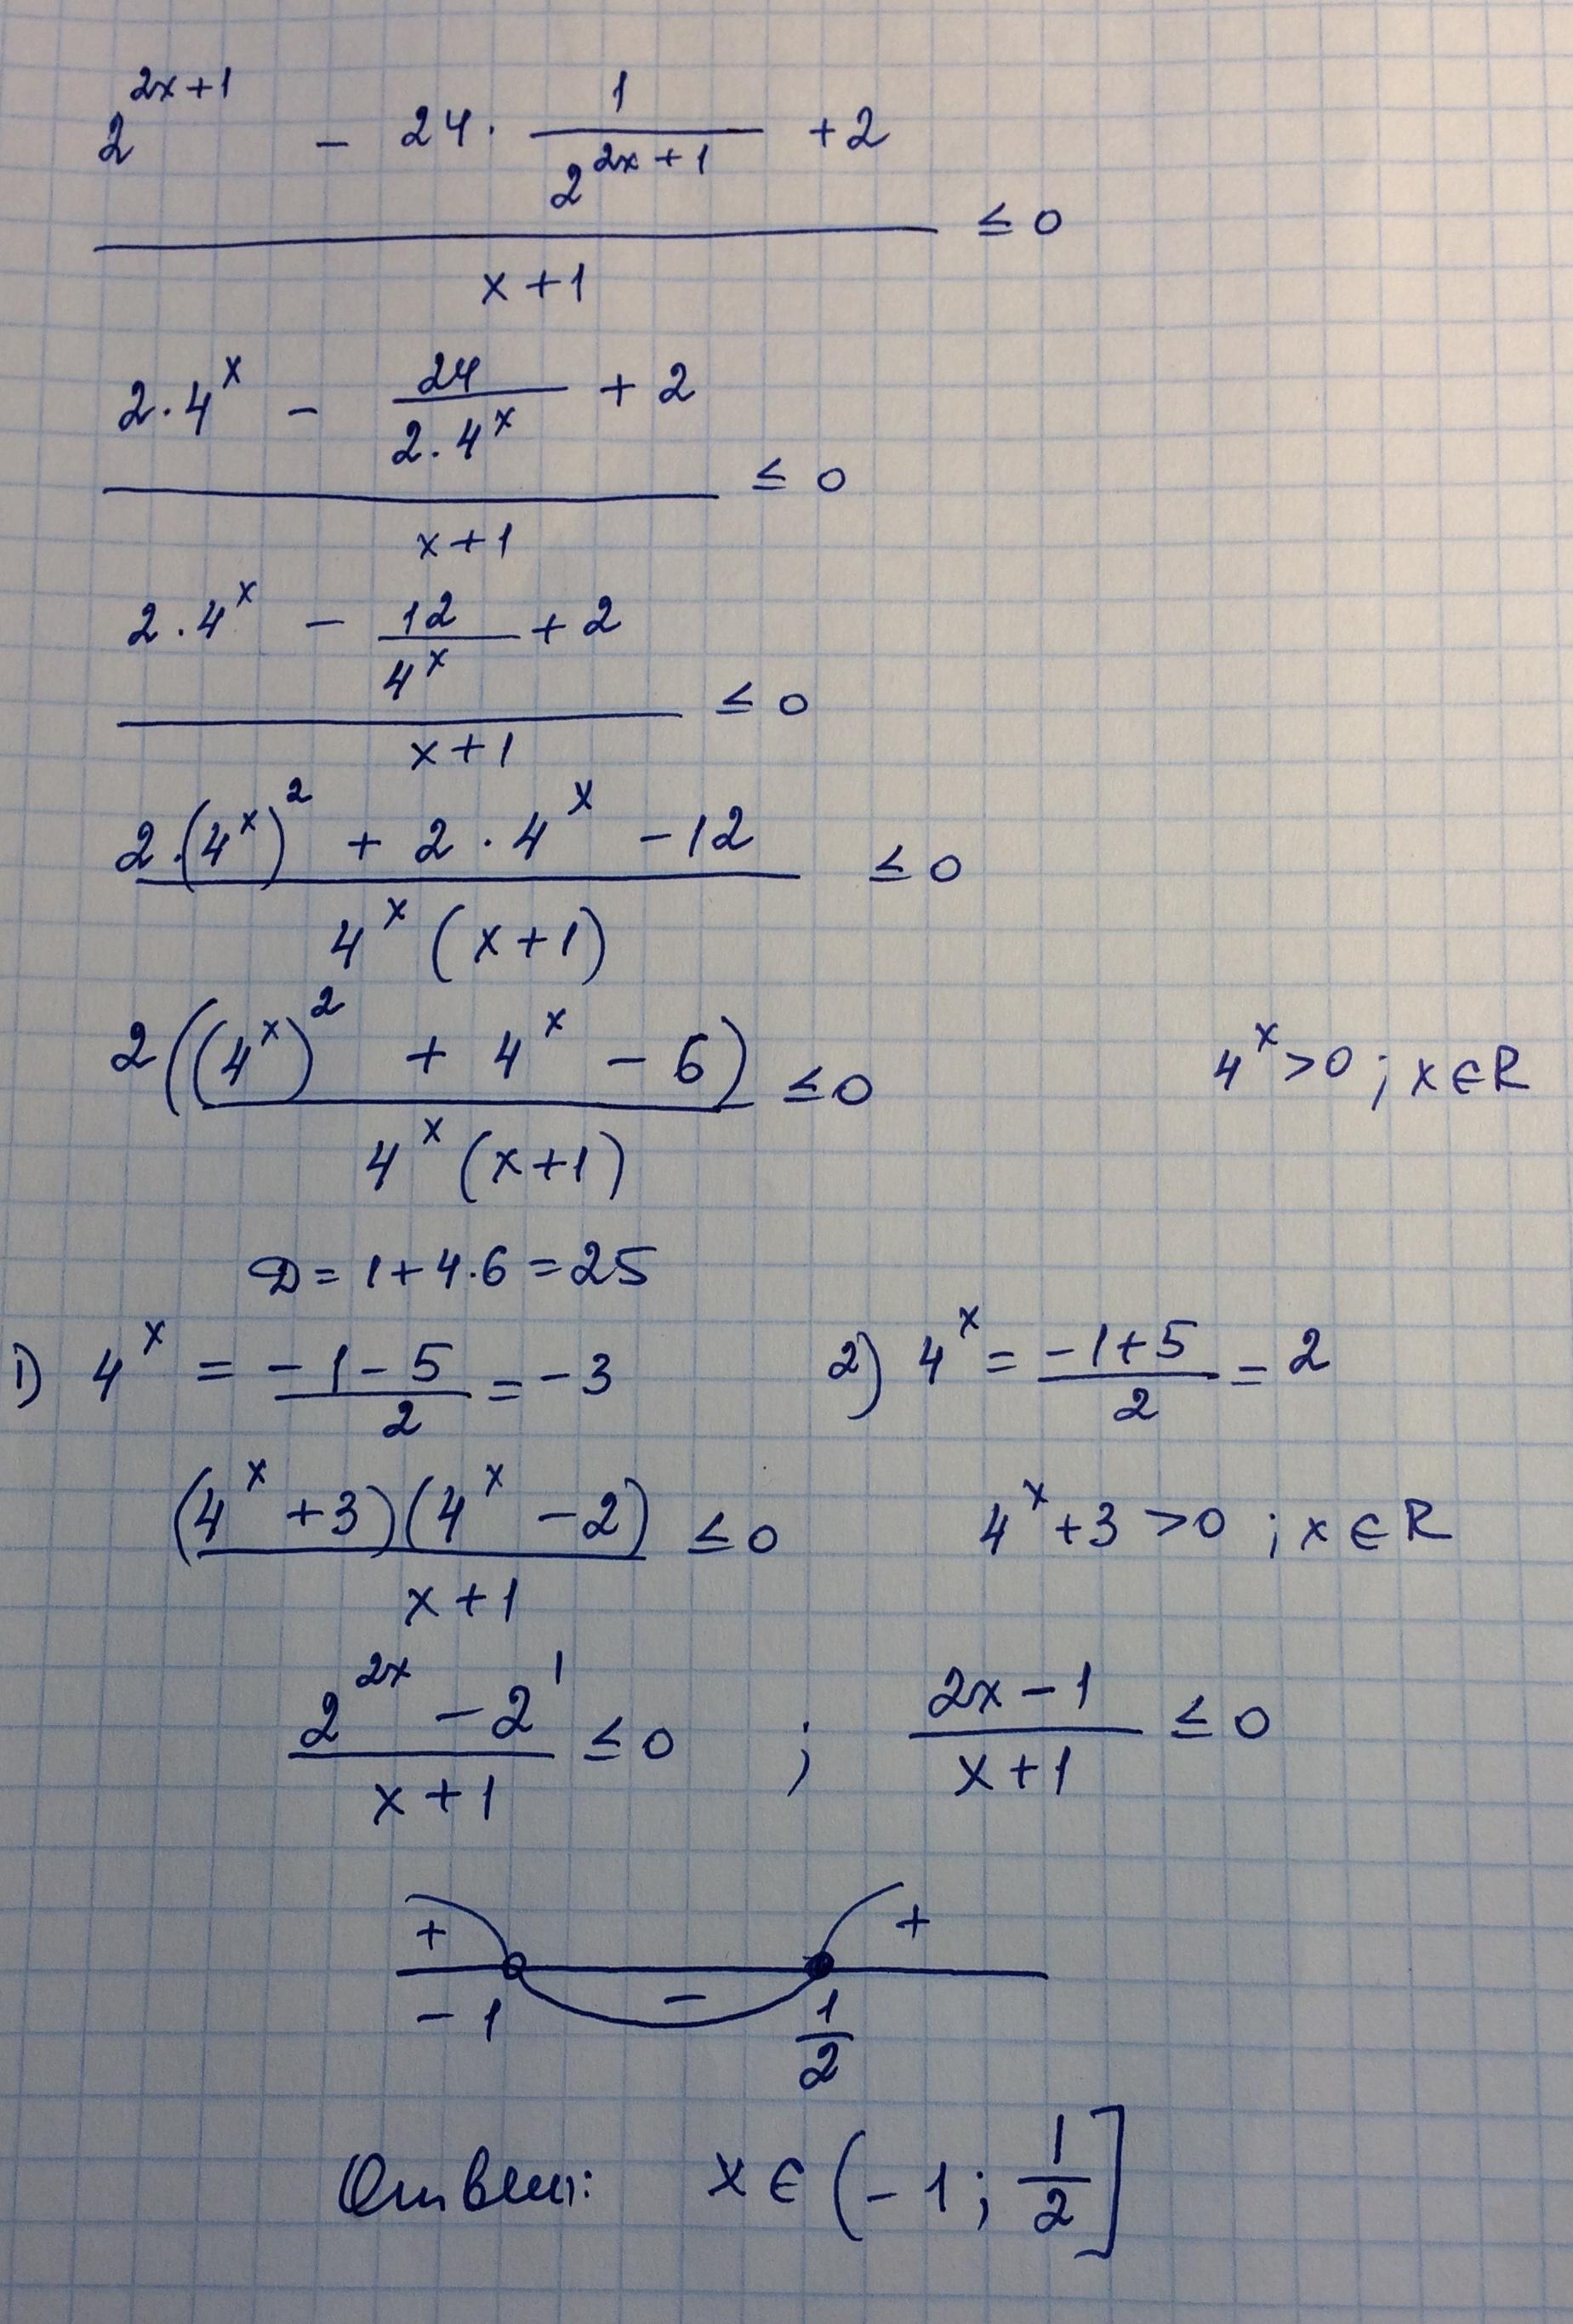 2^(2x+1) - 24 · 1/2^(2x+1) + 2
≤ 0
x+1
2·4^x - 24/(2·4^x) + 2
≤ 0
x+1
2·4^x - 12/4^x + 2
≤ 0
x+1
2·(4^x)^2 + 2·4^x - 12 ≤ 0
4^x (x+1)
2((4^x)^2 + 4^x - 6) ≤ 0 4^x > 0 ; x ∈ R
4^x (x+1)
D = 1 + 4·6 = 25
1) 4^x = (-1-5)/2 = -3 2) 4^x = (-1+5)/2 = 2
(4^x + 3)(4^x - 2) ≤ 0 4^x + 3 > 0 ; x ∈ R
x+1
(2^(2x) - 2^1)/(x+1) ≤ 0 ; (2x-1)/(x+1) ≤ 0
+ +
-
-1 1/2
Ответ: x ∈ (-1; 1/2]